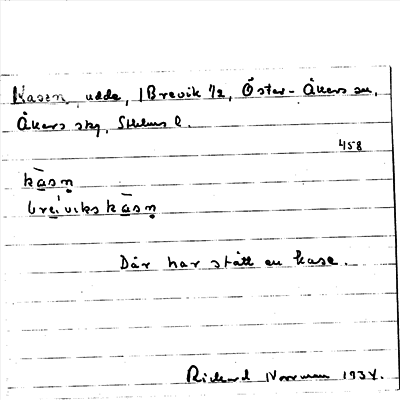 Kasen, udde, i Brevik 1/2, Öster-Åkers sn,
Åkers skg, Sthlms l.
458
kāsṇ
breiviks kāsṇ
Där har stått en kase.
Rickard Norrman 1934.